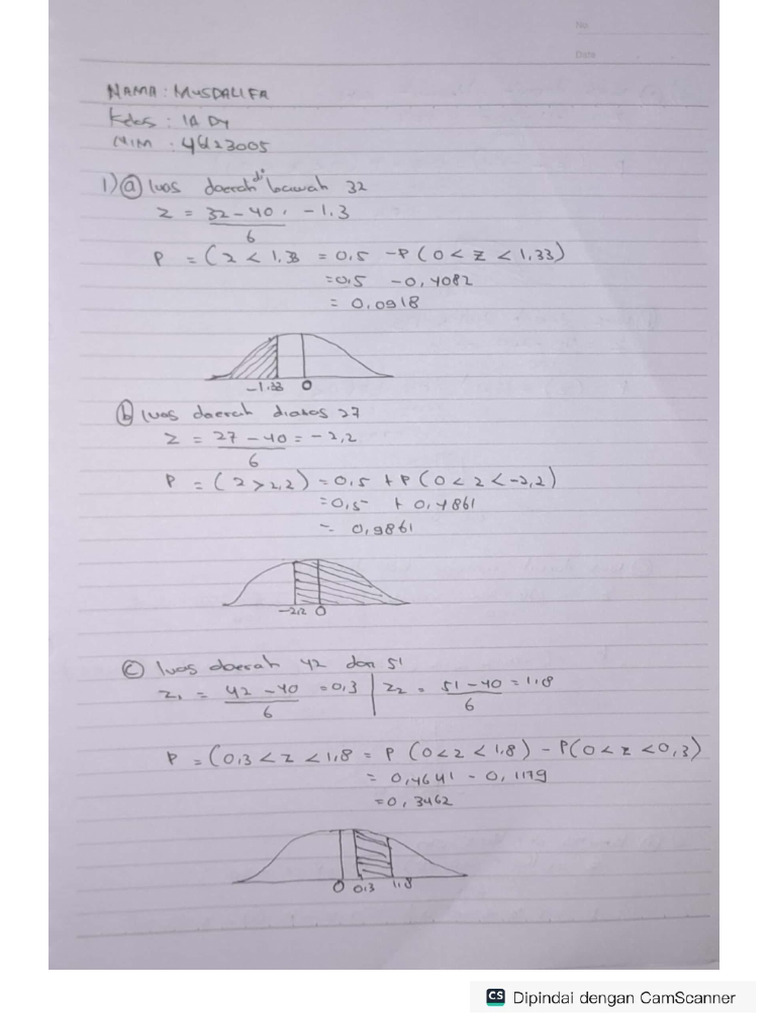 No.
Date
NAMA : MUSDALIFA
Kelas : 1A D4
NIM : 46123005
1) ⓐ luas daerah di bawah 32
Z = 32 - 40 , -1.3
6
P = (Z < 1.33 = 0,5 - P (0 < Z < 1,33)
= 0,5 - 0,4082
= 0,0918
-1.33 0
ⓑ luas daerah diatas 27
Z = 27 - 40 = -2,2
6
P = (Z > 2,2) = 0,5 + P (0 < Z < -2,2)
= 0,5 + 0,4861
= 0,9861
-2,2 0
ⓒ luas daerah 42 dan 51
Z₁ = 42 - 40 = 0,3 | Z₂ = 51 - 40 = 1,8
6 6
P = (0,3 < Z < 1,8 = P (0 < Z < 1,8) - P(0 < Z < 0,3)
= 0,4641 - 0,1179
= 0,3462
0 0,3 1,8
CS Dipindai dengan CamScanner